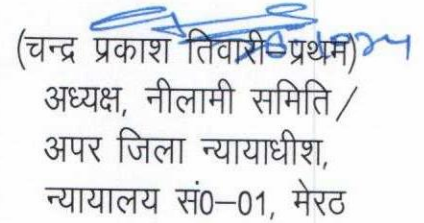 (चन्द्र प्रकाश तिवारी-प्रथम)
अध्यक्ष, नीलामी समिति /
अपर जिला न्यायाधीश,
न्यायालय सं0–01, मेरठ